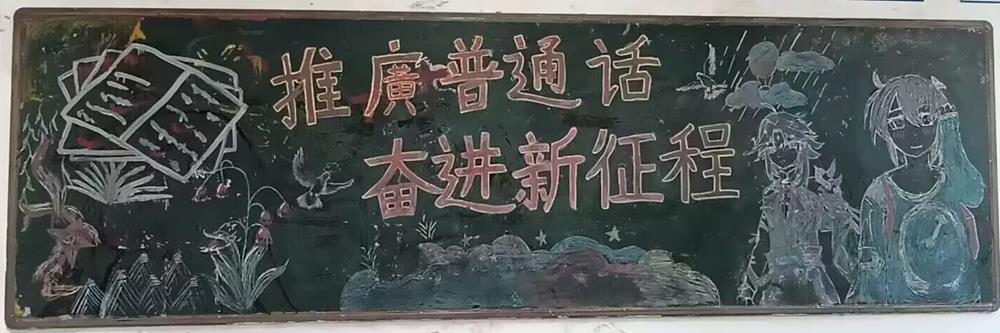 推廣普通话
奋进新征程